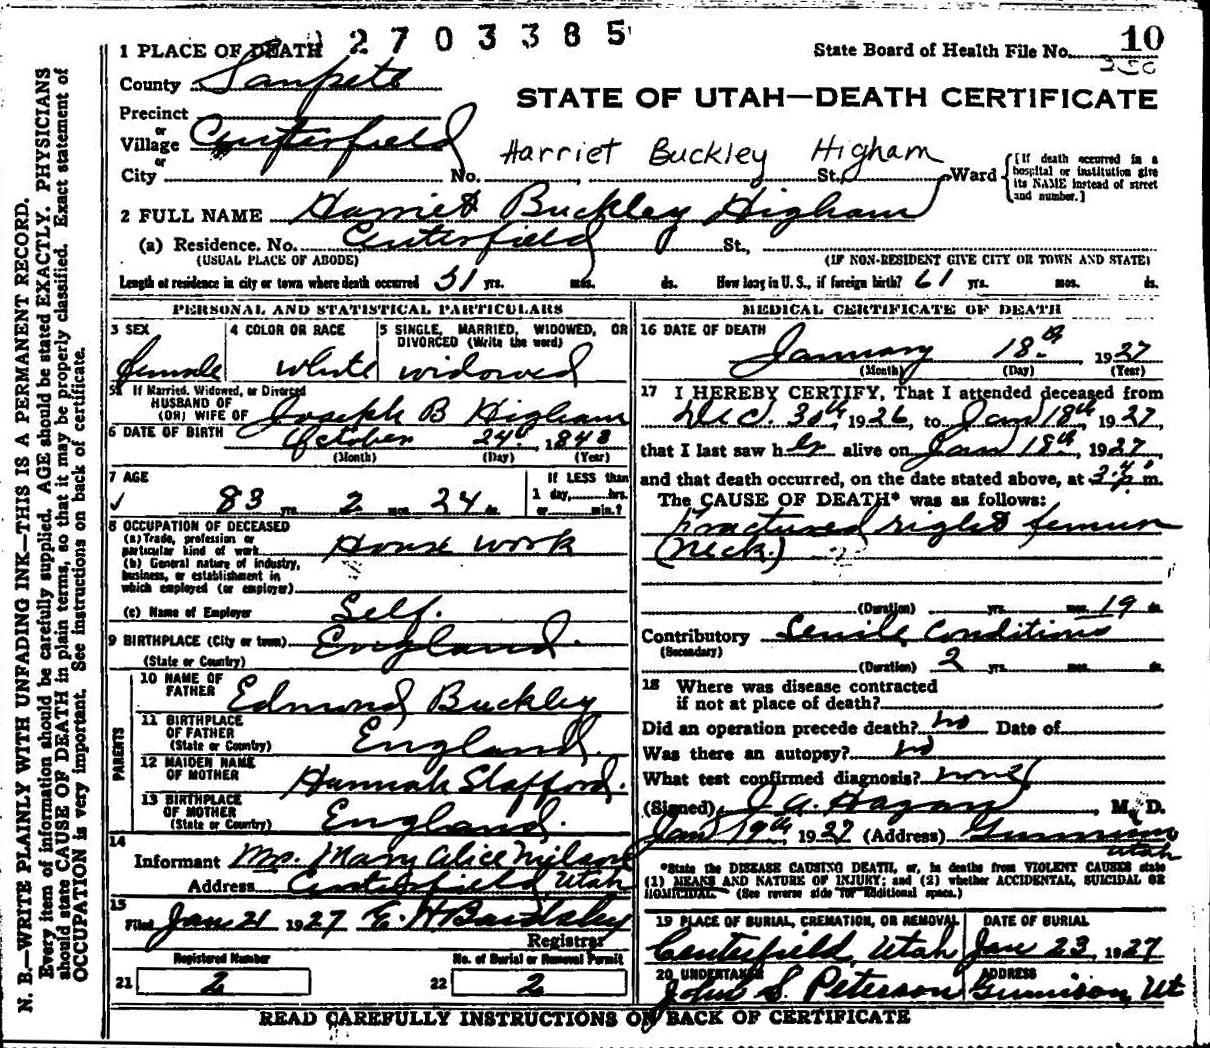 2703385
1 PLACE OF DEATH
State Board of Health File No. 10
County Sanpete
STATE OF UTAH—DEATH CERTIFICATE
Precinct
or
Village Centerfield
or
Harriet Buckley Higham
City No. St., Ward
[If death occurred in a hospital or institution give its NAME instead of street and number.]
2 FULL NAME Harriet Buckley Higham
(a) Residence. No. Centerfield St.,
(USUAL PLACE OF ABODE) (IF NON-RESIDENT GIVE CITY OR TOWN AND STATE)
Length of residence in city or town where death occurred 51 yrs. mos. ds. How long in U. S., if foreign birth? 61 yrs. mos. ds.
PERSONAL AND STATISTICAL PARTICULARS
3 SEX
female
4 COLOR OR RACE
white
5 SINGLE, MARRIED, WIDOWED, OR DIVORCED (Write the word)
widowed
5a If Married, Widowed, or Divorced
HUSBAND OF
(OR) WIFE OF Joseph B Higham
6 DATE OF BIRTH October 24th, 1843
(Month) (Day) (Year)
7 AGE
83 yrs. 2 mos. 24 ds.
If LESS than
1 day, hrs.
or min.?
8 OCCUPATION OF DECEASED
(a) Trade, profession or
particular kind of work House work
(b) General nature of industry,
business, or establishment in
which employed (or employer)
(c) Name of Employer Self.
9 BIRTHPLACE (City or town) England.
(State or Country)
PARENTS
10 NAME OF FATHER Edmund Buckley
11 BIRTHPLACE OF FATHER England.
(State or Country)
12 MAIDEN NAME OF MOTHER Hannah Stafford.
13 BIRTHPLACE OF MOTHER England.
(State or Country)
14
Informant Mrs. Mary Alice
Address Centerfield Utah
15
Filed Jan 21 1927 E. H. Bardsley
Registrar
Registered Number
21 2
No. of Burial or Removal Permit
22 2
MEDICAL CERTIFICATE OF DEATH
16 DATE OF DEATH
January 18th, 1927
(Month) (Day) (Year)
17 I HEREBY CERTIFY, That I attended deceased from
Dec. 30th, 1926, to Jan 18th, 1927,
that I last saw her alive on Jan 18th, 1927,
and that death occurred, on the date stated above, at p.m.
The CAUSE OF DEATH* was as follows:
Fractured right femur
(neck.)
(Duration) yrs. mos. 19 ds.
Contributory Senile Conditions
(Secondary)
(Duration) 2 yrs. mos. ds.
18 Where was disease contracted
if not at place of death?
Did an operation precede death? no Date of
Was there an autopsy? no
What test confirmed diagnosis? none
(Signed) J. A. Hagan, M. D.
Jan 19th, 1927 (Address) Gunnison
Utah
*State the DISEASE CAUSING DEATH, or, in deaths from VIOLENT CAUSES state
(1) MEANS AND NATURE OF INJURY; and (2) whether ACCIDENTAL, SUICIDAL OR
HOMICIDAL. (See reverse side for additional space.)
19 PLACE OF BURIAL, CREMATION, OR REMOVAL
Centerfield, Utah
DATE OF BURIAL
Jan 23, 1927
20 UNDERTAKER
John S. Peterson
ADDRESS
Gunnison, Ut
READ CAREFULLY INSTRUCTIONS ON BACK OF CERTIFICATE
N. B.—WRITE PLAINLY WITH UNFADING INK—THIS IS A PERMANENT RECORD.
Every item of information should be carefully supplied. AGE should be stated EXACTLY. PHYSICIANS
should state CAUSE OF DEATH in plain terms, so that it may be properly classified. Exact statement of
OCCUPATION is very important. See instructions on back of certificate.